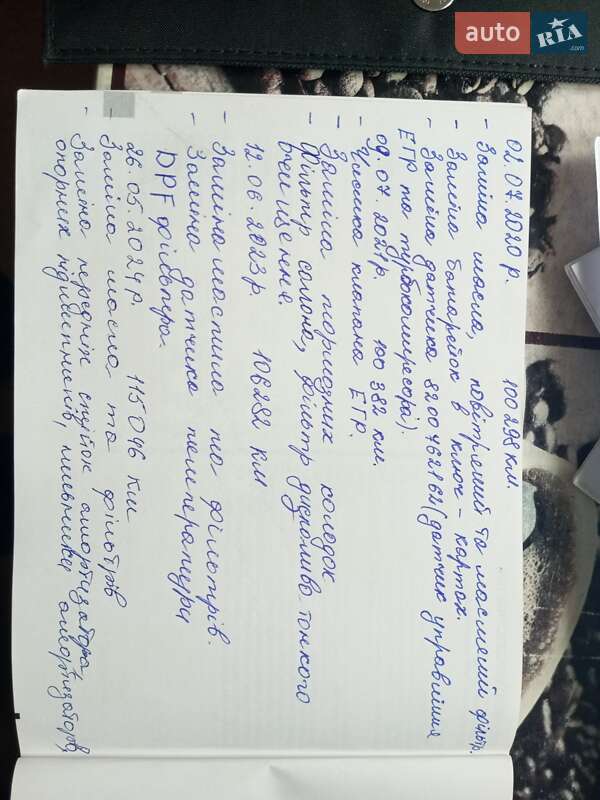 auto RIA .com
02.07.2020 р. 100298 км.
- Заміна масла, повітряний та масляний фільтр.
- Заміна батарейок в ключ-картах.
- Заміна датчика 8200462862 (датчик управління
ЕГР та турбокомпресора).
09.07.2021 р. 100382 км.
- Чистка клапана ЕГР.
- Заміна тормозних колодок
- Фільтр салона, фільтр дизпаливо тонкого
очищення.
12.06.2023 р. 106282 км
- Заміна мастила та фільтрів.
- Заміна датчика температури
DPF фільтра.
26.05.2024 р. 115046 км
- Заміна масла та фільтрів
- Заміна передніх стійок амортизатора,
опорних підшипників, амортизаторів